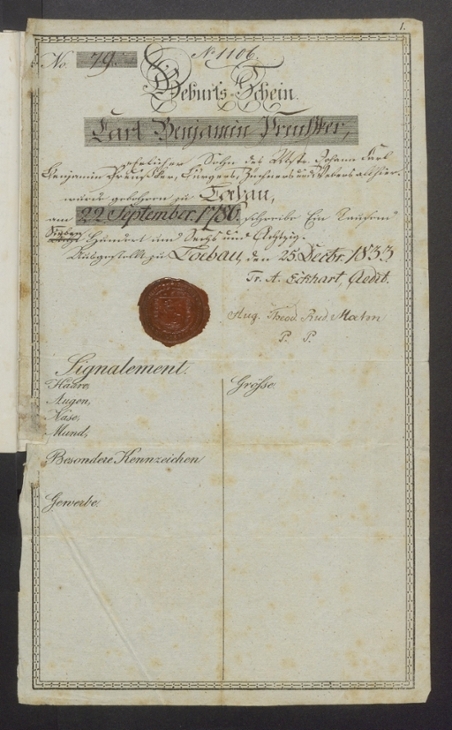 1.
No. 79.
No. 1106
Geburts-Schein.
Carl Benjamin Preusker,
ehelicher Sohn des Mstr. Johann Carl
Benjamin Preusker, Bürgers, und
wurde gebohren zu Löbau,
am 22 September, 1786, schreibe Ein Tausend
Sieben
Hundert und Sechs und Achtzig.
Ausgestellt zu Loebau, den 25. Decbr. 1833
Fr. A. Eckhart, Aedit.
Aug. Theod. Rud. Matin
P. P.
Signalement.
Haare,
Grösse
Augen,
Nase,
Mund,
Besondere Kennzeichen
Gewerbe.